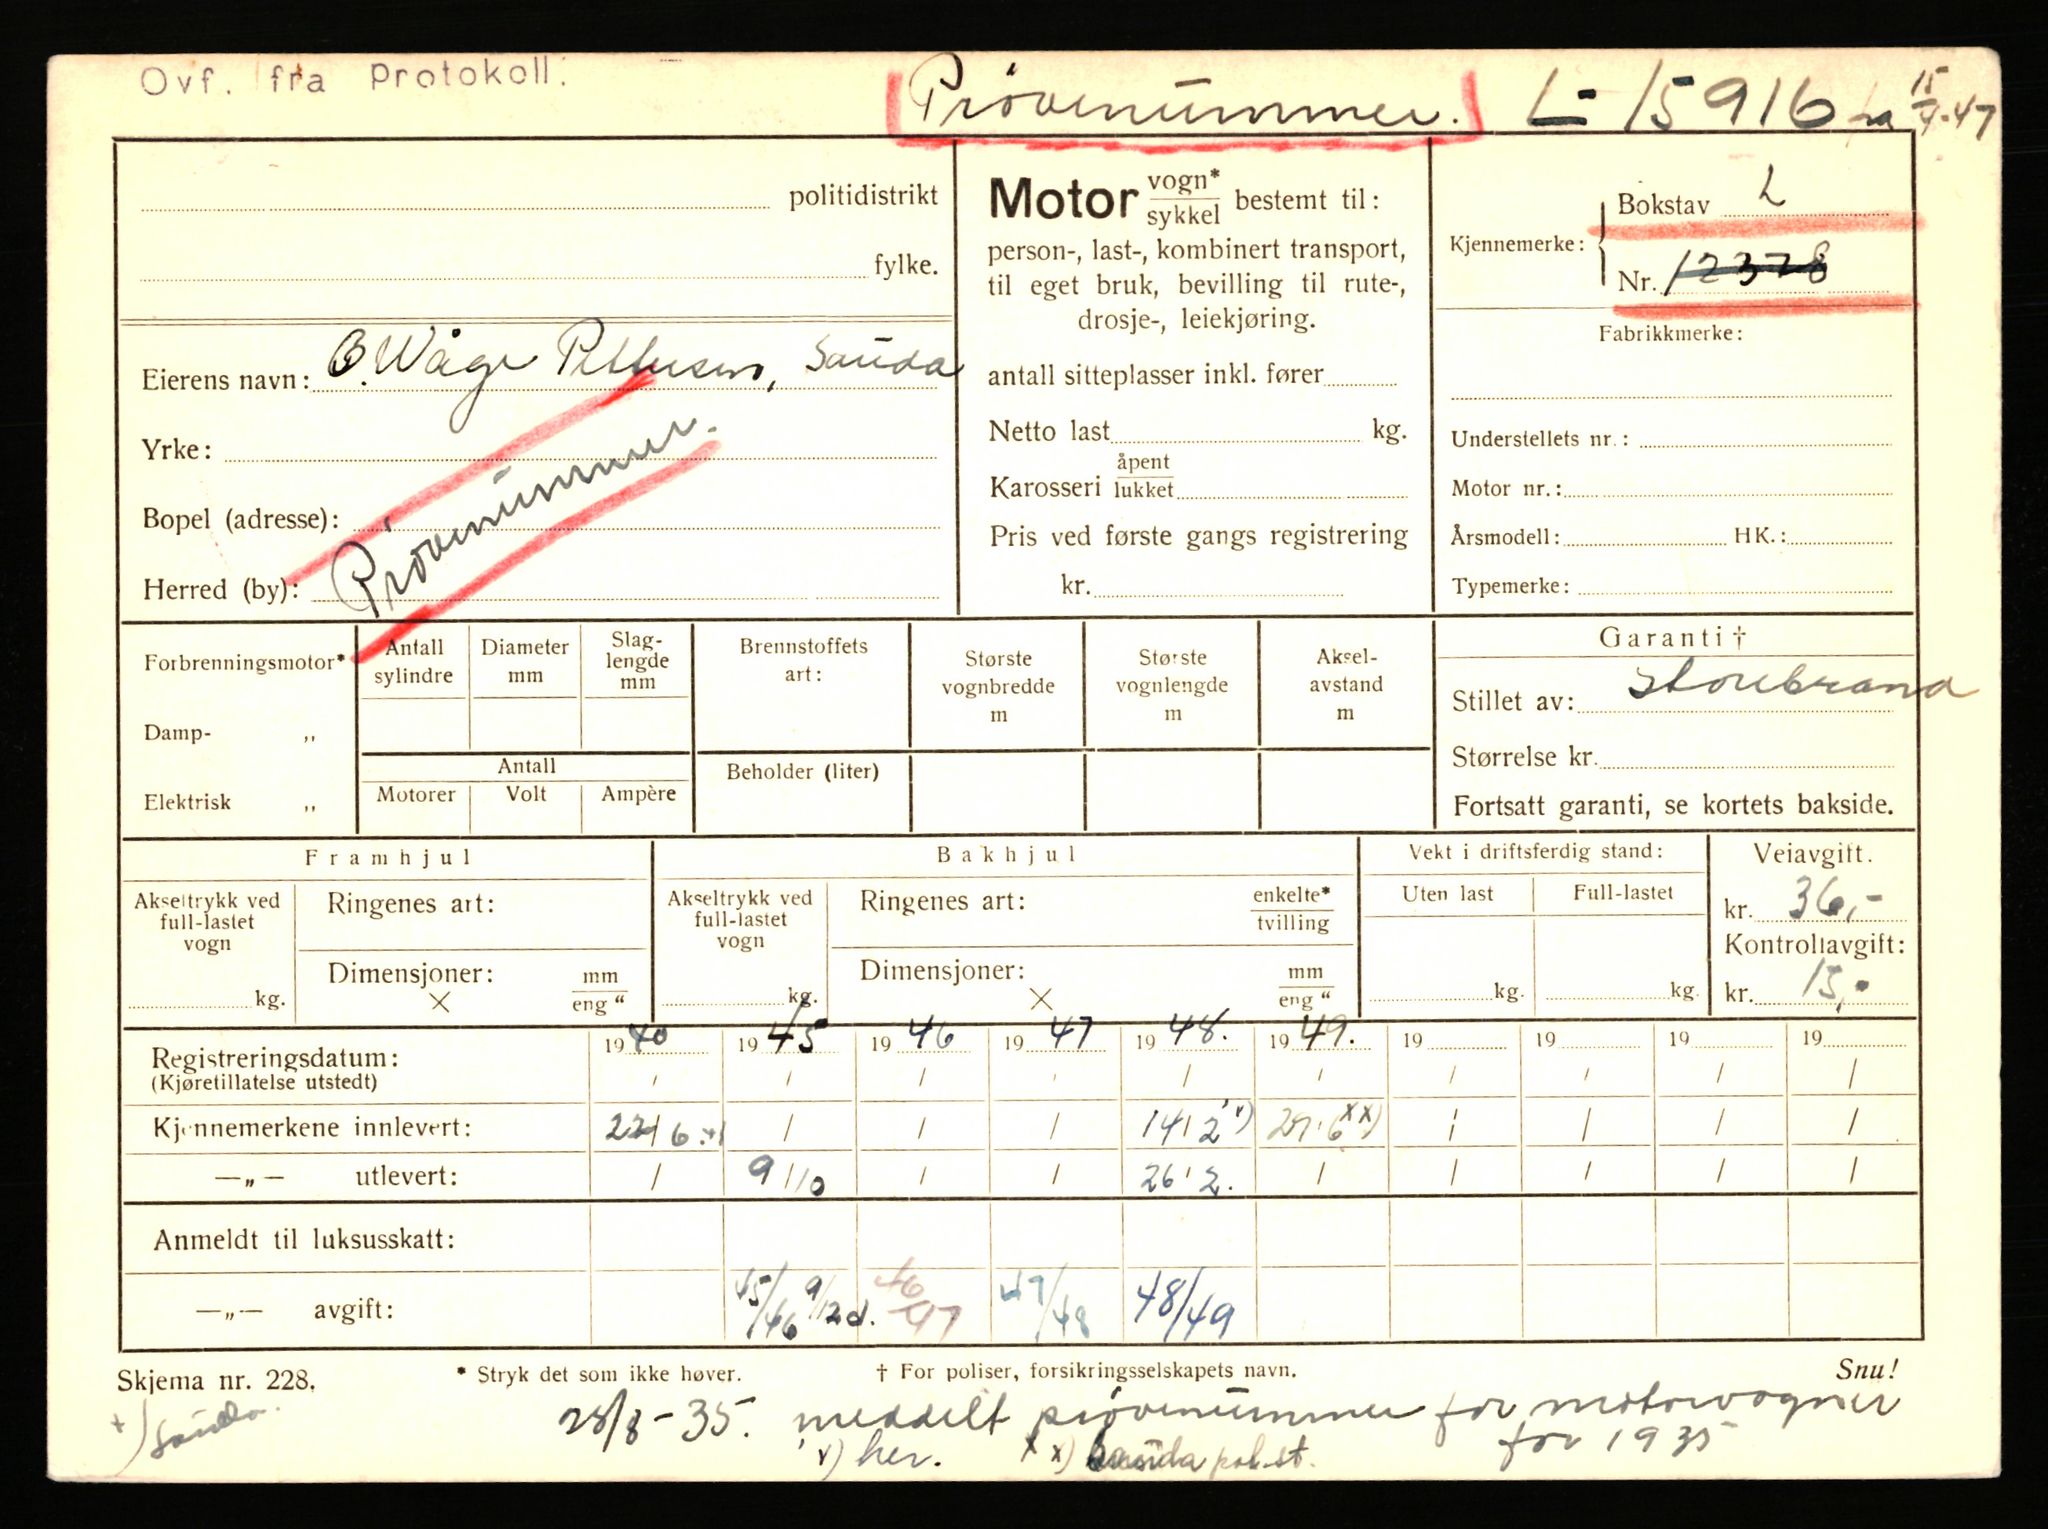 Ovf. fra Protokoll.
Prøvenummer. L-15916 fra 15/4-47
politidistrikt
fylke.
Motor vogn*/sykkel bestemt til:
person-, last-, kombinert transport,
til eget bruk, bevilling til rute-,
drosje-, leiekjøring.
antall sitteplasser inkl. fører
Netto last kg.
Karosseri åpent/lukket
Pris ved første gangs registrering
kr.
Kjennemerke: { Bokstav L
Nr. 12378
Fabrikkmerke:
Understellets nr.:
Motor nr.:
Årsmodell: HK.:
Typemerke:
Eierens navn: O. Wåge Pettersen, Sauda
Yrke:
Bopel (adresse):
Herred (by):
Prøvenummer.
Forbrenningsmotor*
Damp- „
Elektrisk „
Antall sylindre
Diameter mm
Slag-lengde mm
Antall
Motorer Volt Ampère
Brennstoffets art:
Beholder (liter)
Største vognbredde m
Største vognlengde m
Aksel-avstand m
Garanti †
Stillet av: Storebrand
Størrelse kr.
Fortsatt garanti, se kortets bakside.
Framhjul
Akseltrykk ved full-lastet vogn
kg.
Ringenes art:
Dimensjoner: mm/eng “
×
Bakhjul
Akseltrykk ved full-lastet vogn
kg.
Ringenes art: enkelte*/tvilling
Dimensjoner: mm/eng “
×
Vekt i driftsferdig stand:
Uten last Full-lastet
kg. kg.
Veiavgift.
kr. 36,-
Kontrollavgift:
kr. 15,-
Registreringsdatum: 1940 1945 1946 1947 1948. 1949. 19 19 19 19
(Kjøretillatelse utstedt) / / / / / / / / / /
Kjennemerkene innlevert: 22/6 +) / / / 14/2 v) 29/6 xx) / / / /
—„— utlevert: / 9/10 / / 26/2. / / / / /
Anmeldt til luksusskatt:
—„— avgift: 45/46 9/12 d. 46/47 47/48 48/49
Skjema nr. 228.
* Stryk det som ikke høver.
† For poliser, forsikringsselskapets navn.
Snu!
+) Sauda.
28/8-35. meddelt prøvenummer for motorvogner
for 1935
v) her. xx) Sauda pol.st.